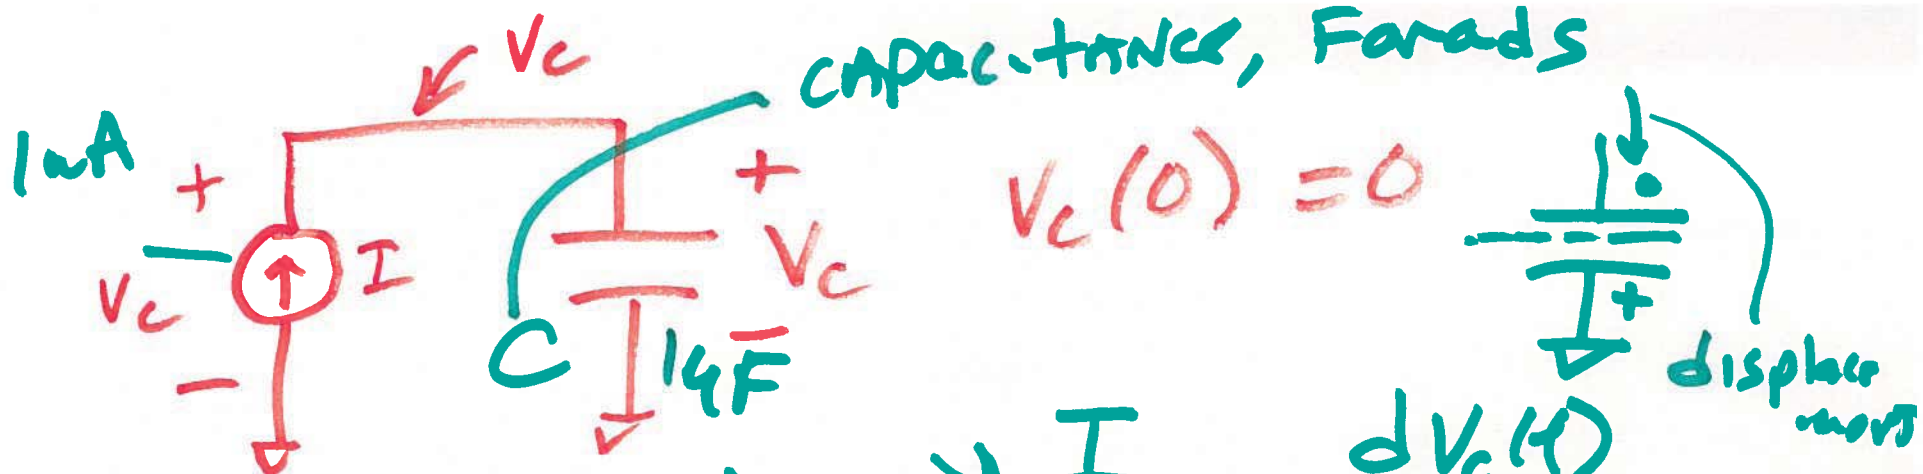 Vc
CAPACITANCE, Farads
1mA
+
+
Vc(0) = 0
I
Vc
Vc
-
C
1μF
+
displace
ment
I
dVc(t)